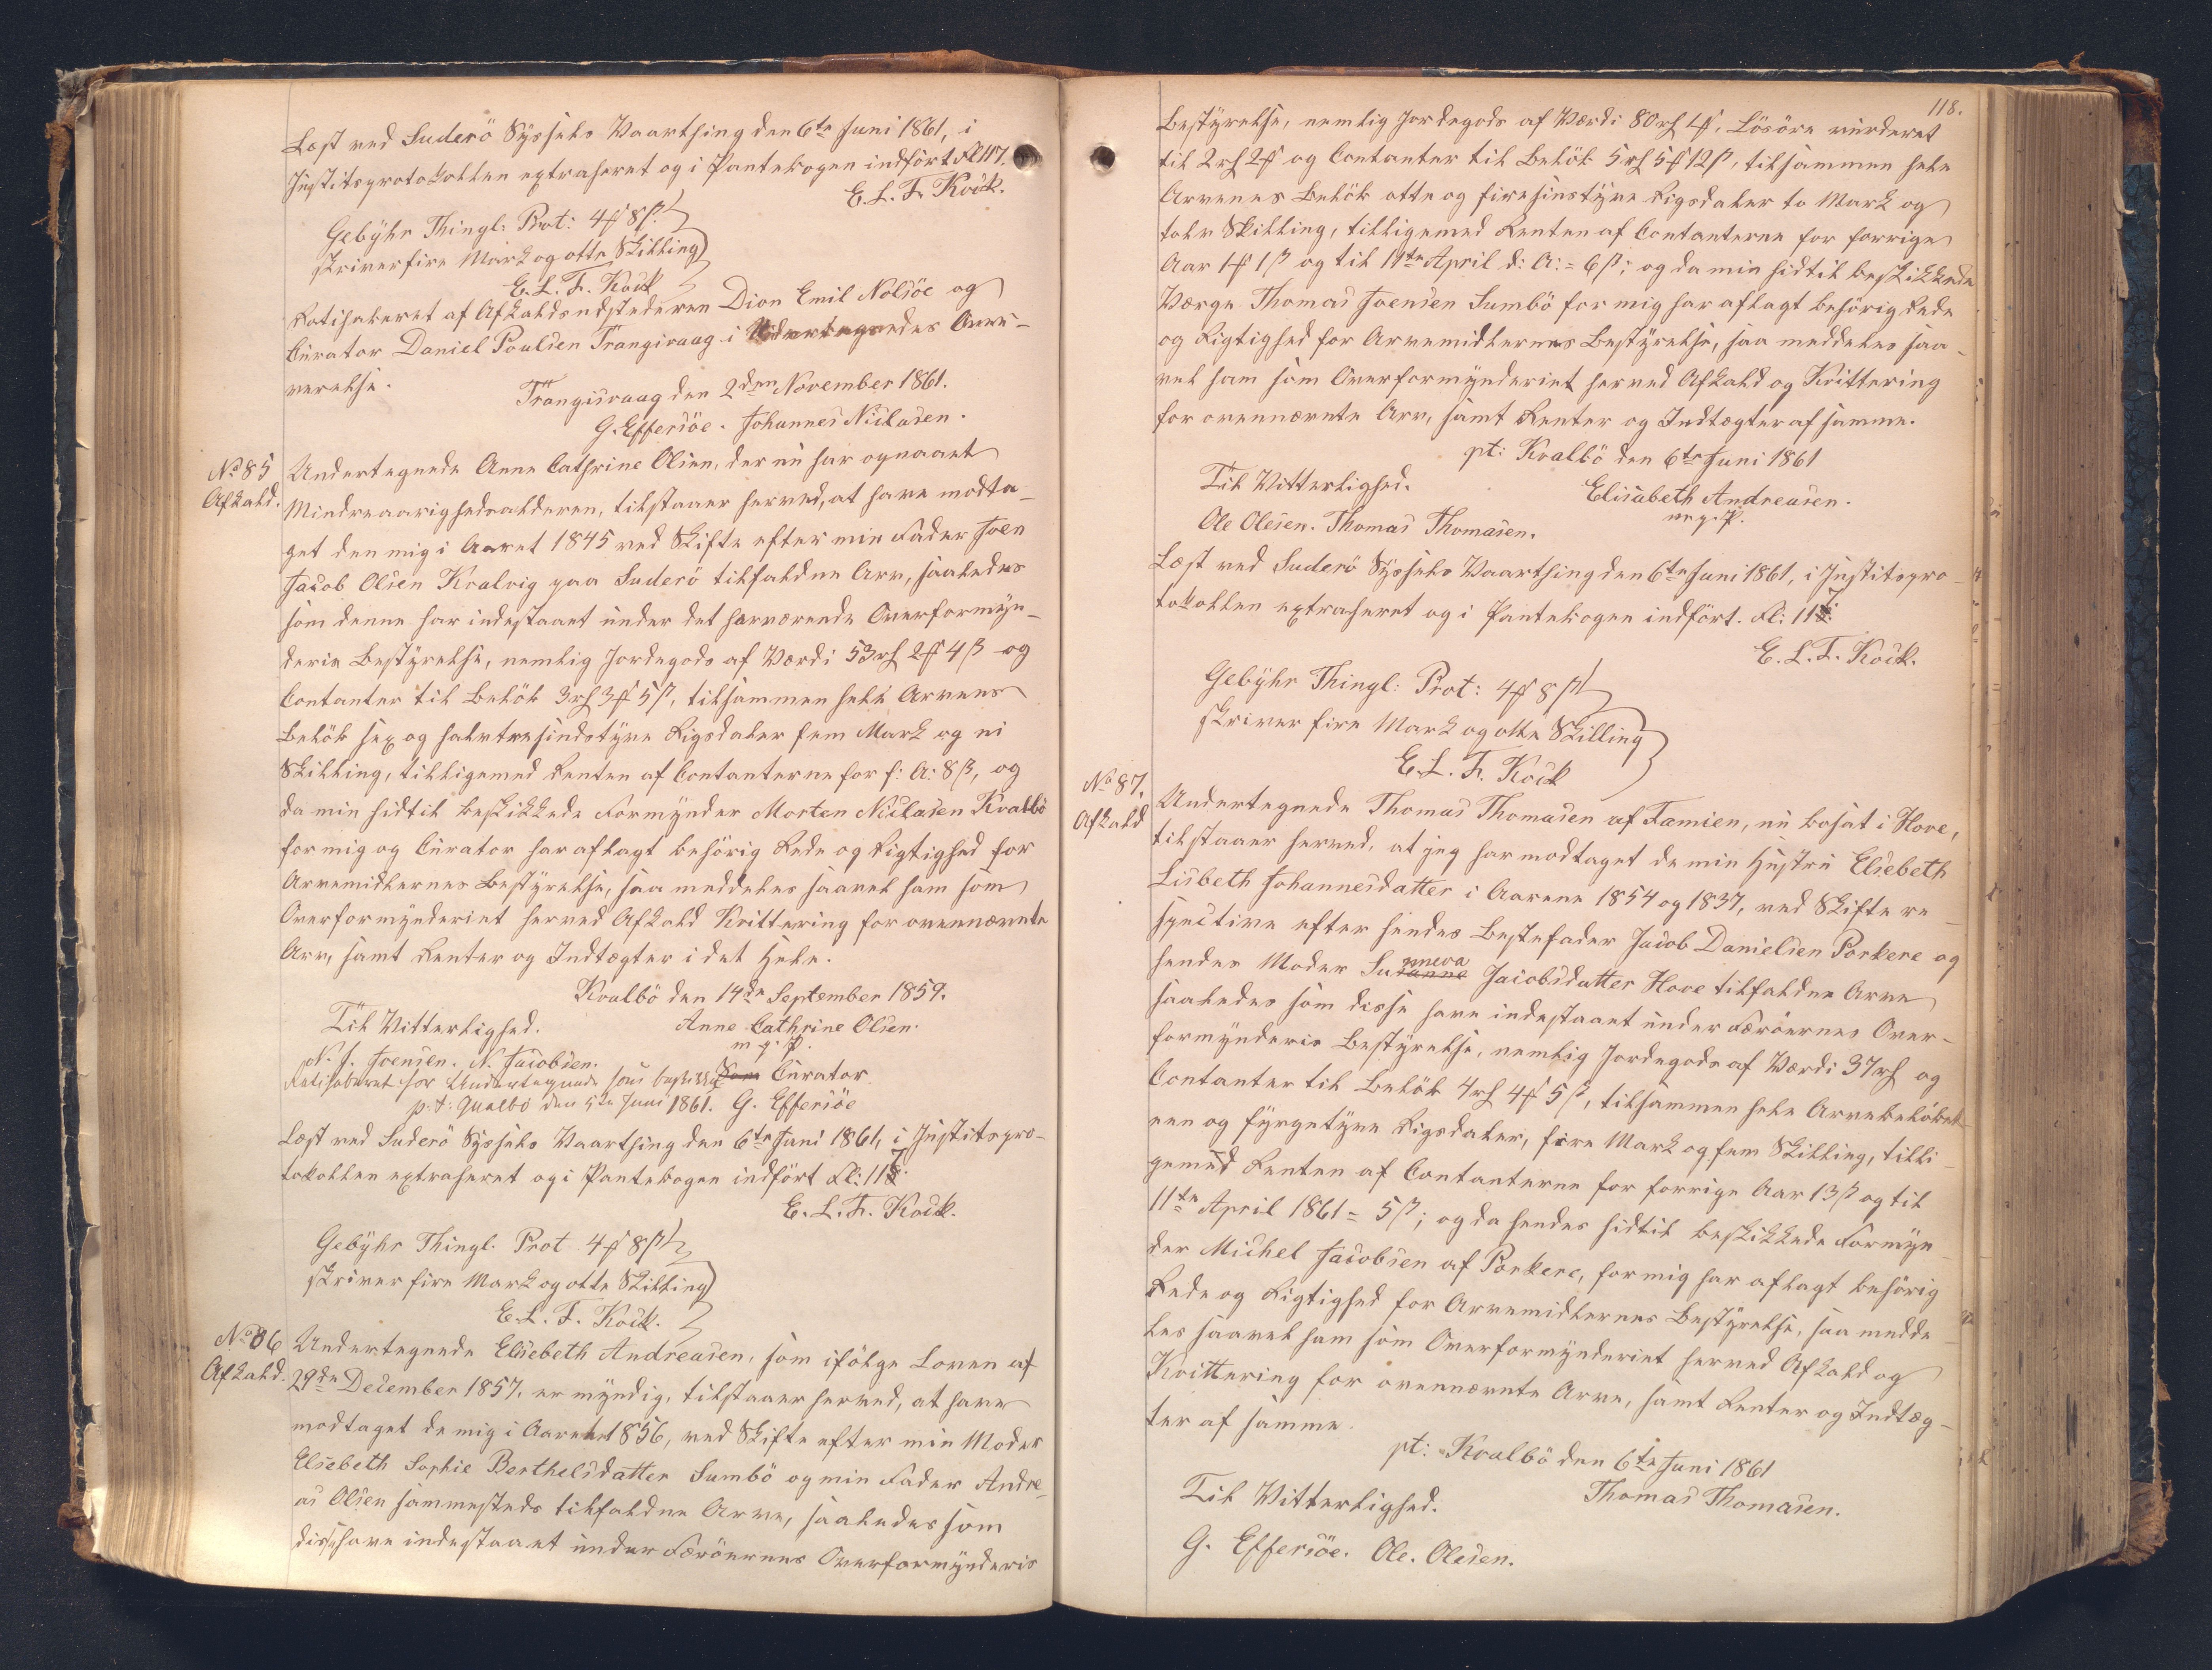 Læst ved Suderö Syssels Vaarthing den 6te Juni 1861, i
Justitsprotokollen extraheret og i Pantebogen indført Fl 117.
E. L. F. Kock.
Gebyhr Thingl: Prot: 4 ₻ 8 β
skriver fire Mark og otte Skilling
E. L. F. Kock
Ratihaberet af Afkaldsudstederen Dion Emil Nolsöe og
Curator Daniel Poulsen Trangisvaag i Undertegnedes Over-
værelse.
Trangisvaag den 2den November 1861.
G. Effersöe. Johannes Niclasen.
No 85
Afkald.
Undertegnede Anne Cathrine Olsen, der nu har opnaaet
Mindreaarighedsalderen, tilstaaer herved, at have modta-
get den mig i Aaret 1845 ved Skifte efter min Fader Joen
Jacob Olsen Kvalvig paa Suderö tilfaldne Arv, saaledes
som denne har indestaaet under det herværende Overformyn-
deris Bestyrelse, nemlig Jordegods af Værdi 53 rd 2 ₻ 4 β og
Contanter til Belöb 3 rd 3 ₻ 5 β, tilsammen hele Arvens
Belöb sex og halvtresindstyve Rigsdaler fem Mark og ni
Skilling, tilligemed Renten af Contanterne for f: A: 8 β, og
da min hidtil beskikkede Formynder Morten Niclasen Kvalbö
for mig og Curator har aflagt behörig Rede og Rigtighed for
Arvemidlernes Bestyrelse, saa meddeles saavel ham som
Overformynderiet herved Afkald Kvittering for ovennævnte
Arv, samt Renter og Indtægter i det Hele.
Kvalbö den 14de September 1859.
Til Vitterlighed. Anne Cathrine Olsen.
m. p. P.
N. J. Joensen. N. Jacobsen.
Ratihaberet for Undertegnede som beskikket Som Curator
p. t. Qualbö den 5te Juni 1861. G. Effersöe
Læst ved Suderö Syssels Vaarthing den 6te Juni 1861, i Justitspro-
tokollen extraheret og i Pantebogen indført Fl: 117.
E. L. F. Kock.
Gebyhr Thingl. Prot 4 ₻ 8 β
skriver fire Mark og otte Skilling
E. L. F. Kock.
No 86
Afkald.
Undertegnede Elsebeth Andreasen, som ifölge Loven af
29de December 1857, er myndig, tilstaaer herved, at have
modtaget de mig i Aaret 1856, ved Skifte efter min Moder
Elsebeth Sophie Berthelsdatter Sumbö og min Fader Andre-
as Olsen sammesteds tilfaldne Arve, saaledes som
disse have indestaaet under Færöernes Overformynderis
118.
Bestyrelse, nemlig Jordegods af Værdi 80 rd 1 ₻, Lösöre vurderet
til 2 rd 2 ₻ og Contanter til Belöb 5 rd 5 ₻ 12 β, tilsammen hele
Arvenes Belöb otte og firesinstyve Rigsdaler to Mark og
tolv Skilling, tilligemed Renten af Contanterne for forrige
Aar 1 ₻ 1 β og til 11te April d: A: = 6 β; og da min hidtil beskikkede
Værge Thomas Joensen Sumbö for mig har aflagt behörig Rede
og Rigtighed for Arvemidlernes Bestyrelse, saa meddeles saa-
vel ham som Overformynderiet herved Afkald og Kvittering
for ovennævnte Arv, samt Renter og Indtægter af samme.
pt: Kvalbö den 6te Juni 1861
Til Vitterlighed. Elisabeth Andreasen.
m. p. P.
Ole Olesen. Thomas Thomasen.
Læst ved Suderö Syssels Vaarthing den 6te Juni 1861, i Justitspro-
tokollen extraheret og i Pantebogen indført. Fl: 117.
E. L. F. Kock.
Gebyhr Thingl: Prot: 4 ₻ 8 β
skriver fire Mark og otte Skilling
E. L. F. Kock
No 87.
Afkald
Undertegnede Thomas Thomasen af Famien, nu bosat i Hove,
tilstaaer herved, at jeg har modtaget de min Hustru Elsebeth
Lisbeth Johannesdatter i Aarene 1854 og 1837, ved Skifte re-
spective efter hendes Bestefader Jacob Danielsen Porkere og
hendes Moder Susanne Jacobsdatter Hove tilfaldne Arve
saaledes som disse have indestaaet under Færöernes Over-
formynderis Bestyrelse, nemlig Jordegods af Værdi 37 rd og
Contanter til Belöb 4 rd 4 ₻ 5 β, tilsammen hele Arvebelöbet
een og fyrgetyve Rigsdaler, fire Mark og fem Skilling, tilli-
gemed Renten af Contanterne for forrige Aar 13 β og til
11te April 1861 = 5 β; og da hendes hidtil beskikkede Formyn-
der Michel Jacobsen af Porkere, for mig har aflagt behörig
Rede og Rigtighed for Arvemidlernes Bestyrelse, saa medde-
les saavel ham som Overformynderiet herved Afkald og
Kvittering for ovennævnte Arve, samt Renter og Indtæg-
ter af samme.
pt: Kvalbö den 6te Juni 1861
Til Vitterlighed. Thomas Thomasen.
G. Effersöe. Ole. Olesen.